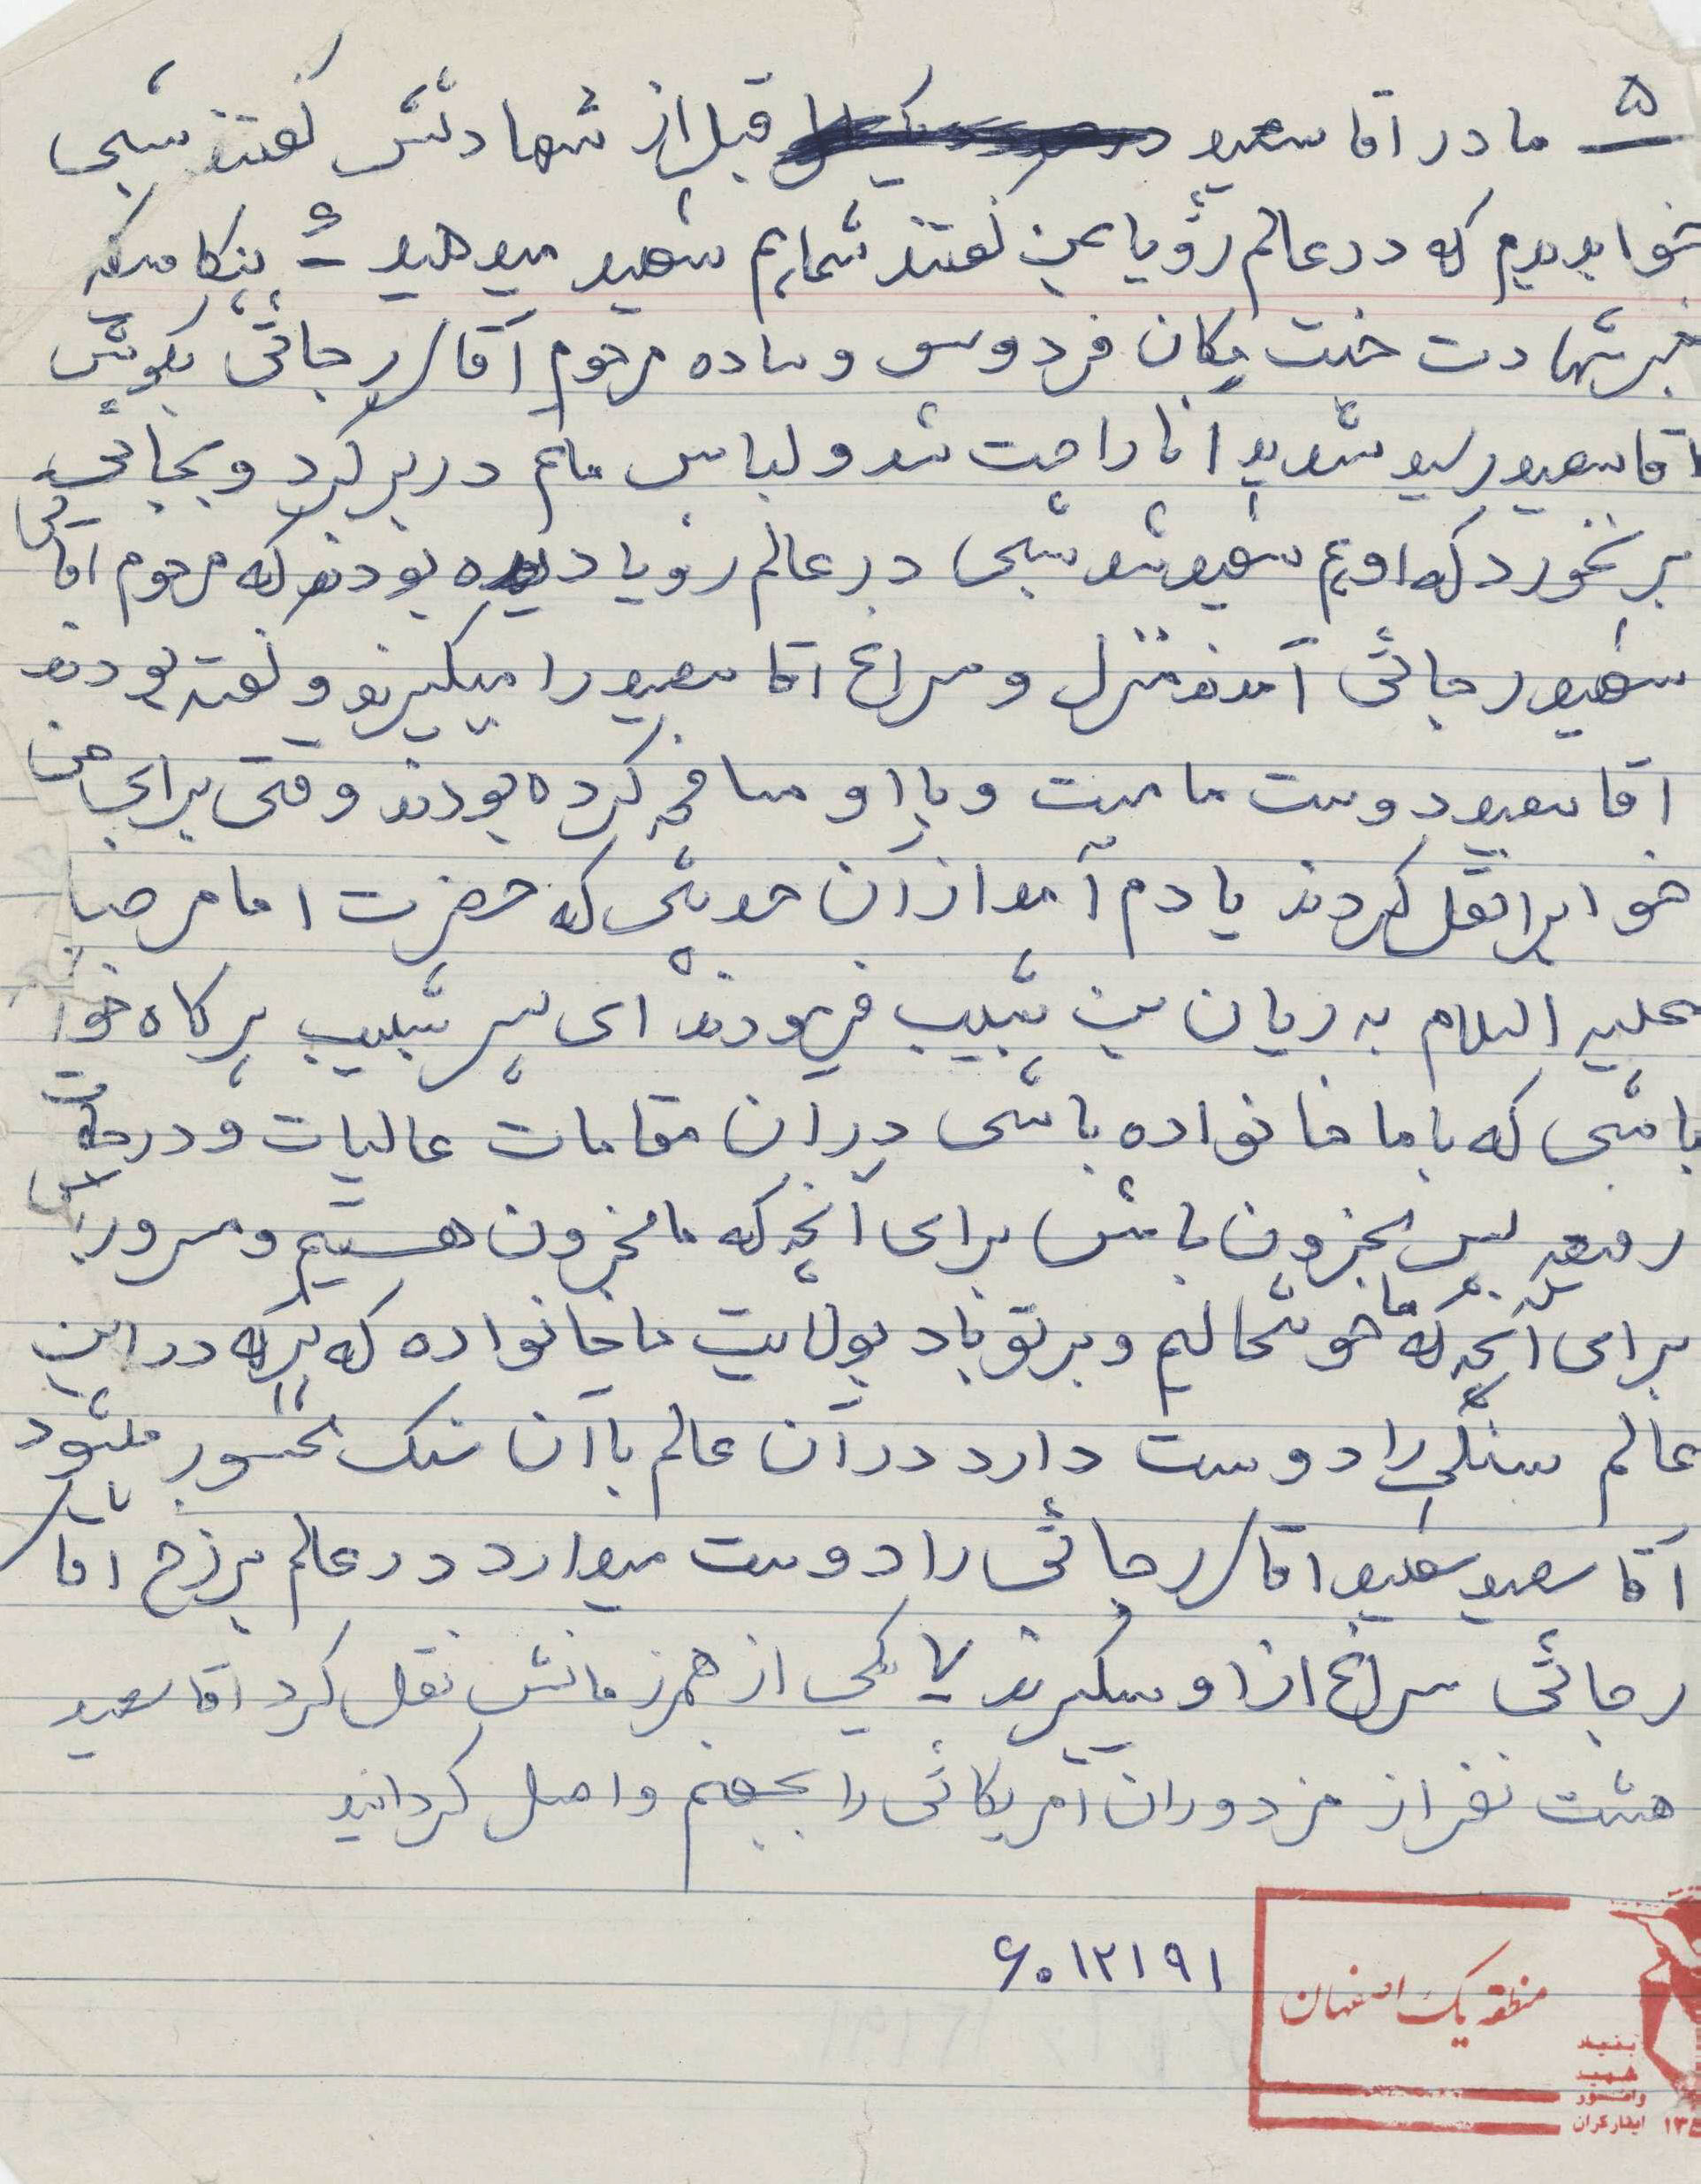 ۵ـ مادر آقا سعید قبل از شهادتش گفتند شبی
خوابدیدم که در عالم رؤیا بمن گفتند شما هم شهید میدهید ۶ـ هنگامیکه
خبر شهادت جنت مکان فردوس وساده مرحوم آقای رجائی بگوش
آقا سعید رسید شدیدا ناراحت شد و لباس ماتم در بر کرد و بجائی
بر نخورد که او هم شهید شد شبی در عالم رؤیا دیده بودند که مرحوم آقای
شهید رجائی آمدند منزل و سراغ آقا سعید را میگیرند و گفته بودند
آقا سعید دوست ماست و با او مصافحه کرده بودند وقتی برای من
خوابرا نقل کردند یادم آمد از آن حدیثی که حضرت امام رضا
علیه السلام به ریان بن شبیب فرمودند ای پسر شبیب هر گاه خواسته
باشی که با ما خانواده باشی در آن مقامات عالیات و درجات
رفیعه پس محزون باش برای آنچه که ما محزون هستیم و مسرور باش
برای آنچه که ما خوشحالیم و بر تو باد بولایت ما خانواده که هر که در این
عالم سنگی را دوست دارد در آن عالم با آن سنگ محشور میشود
آقا سعید شهید آقای رجائی را دوست میدارد در عالم برزخ آقای
رجائی سراغ از او میگیرند ۷ یکی از همرزمانش نقل کرد آقا سعید
هشت نفر از مزدوران آمریکائی را بجهنم واصل گردانید
۶۰۱۲۱۹۱
منطقه یک اصفهان
بنیاد
شهید
وامور
ایثارگران